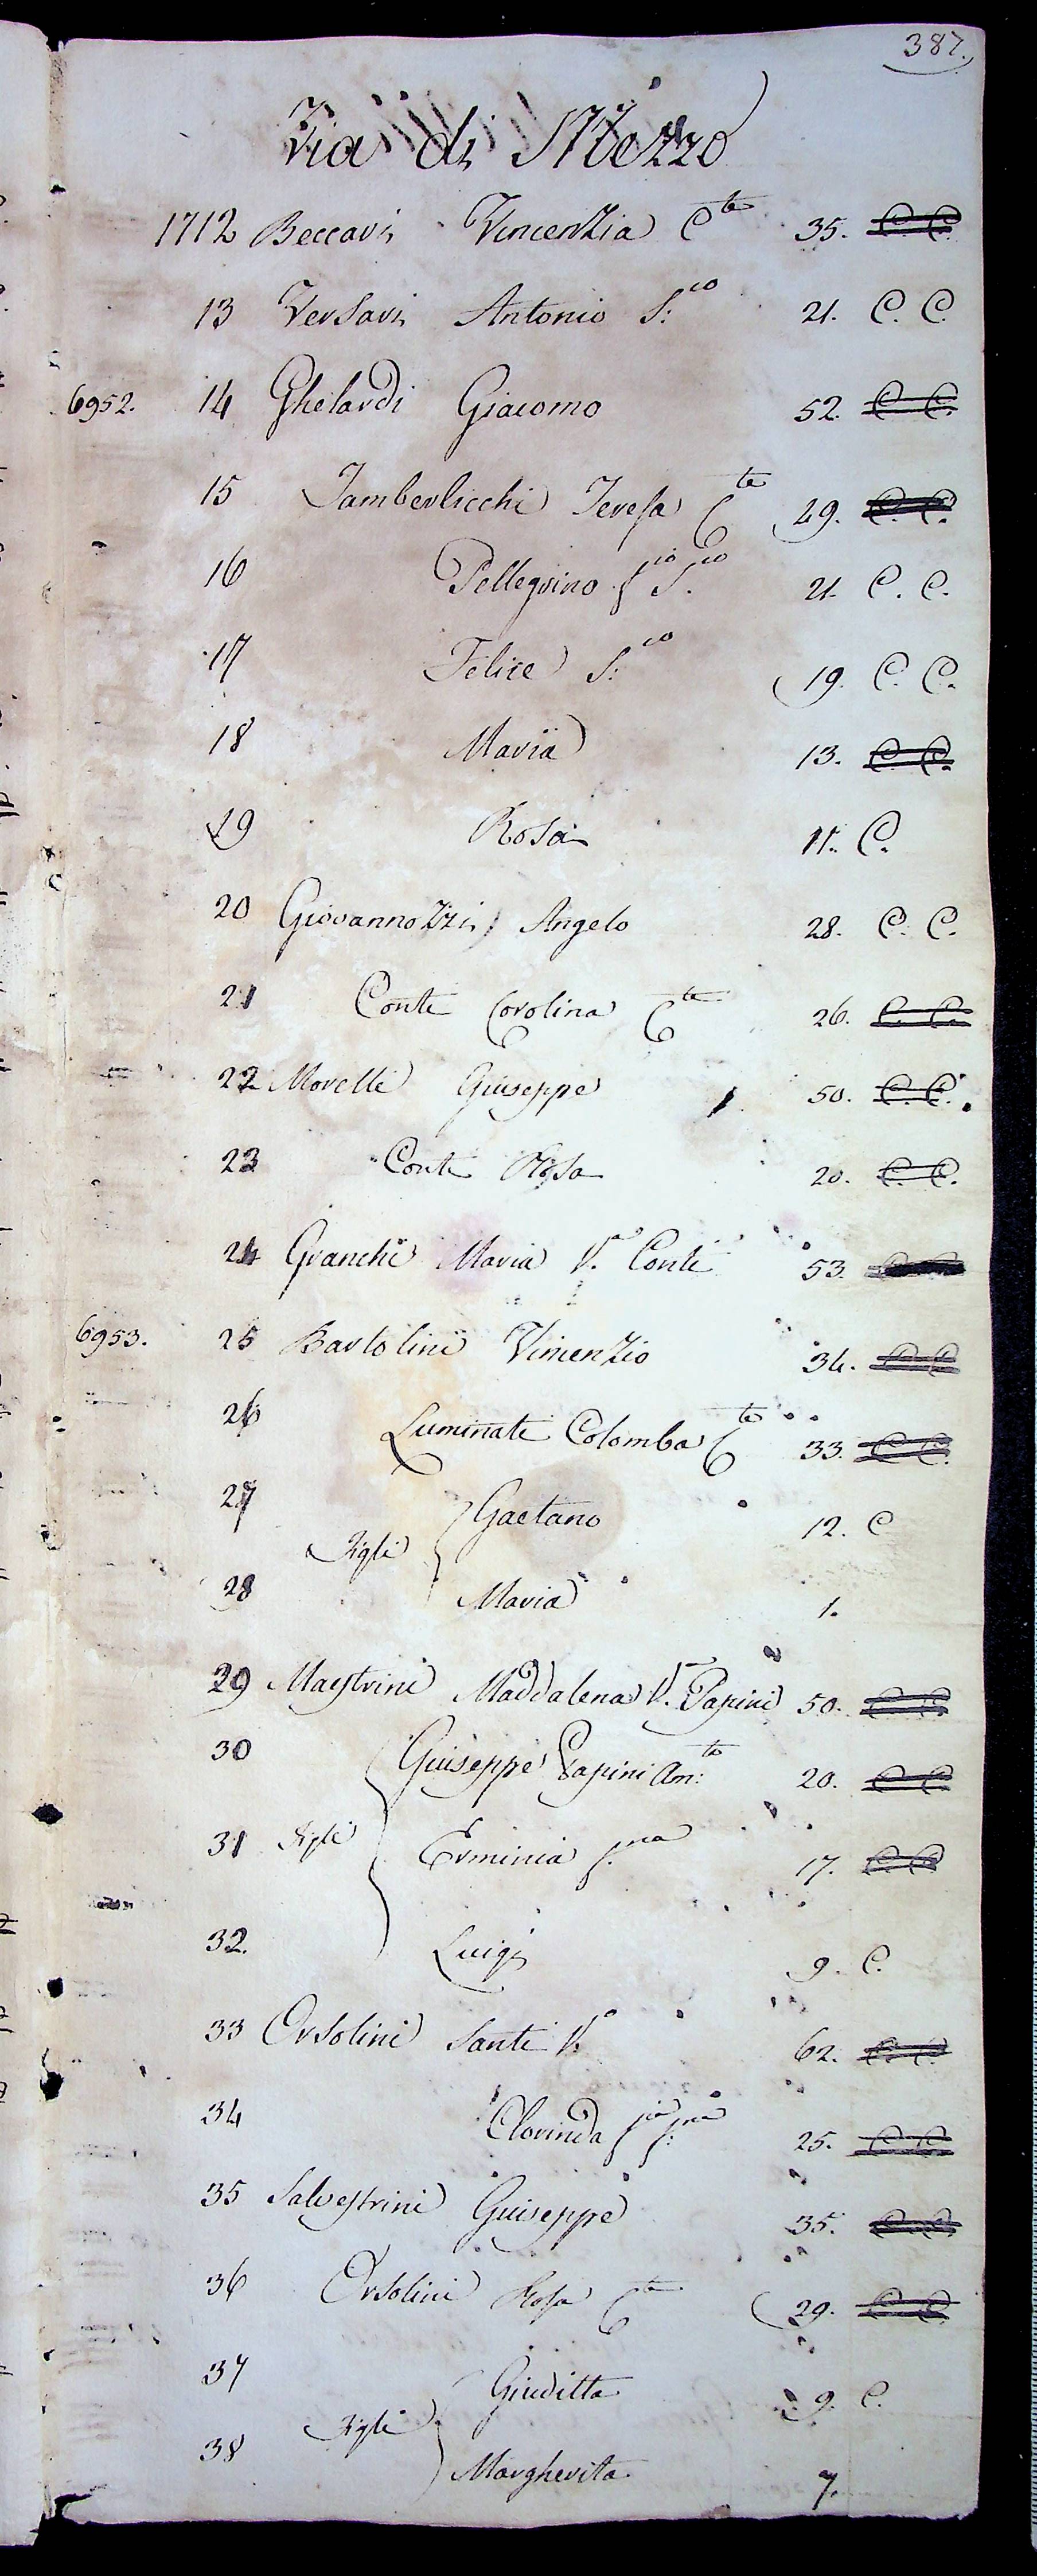 387.
Via di Mezzo
1712 Beccari Vincenzia Cte 35. C. C.
13 Versari Antonio S:co 21. C. C.
6952. 14 Ghelardi Giacomo 52. C. C.
15 Tamberlicchi Teresa Cte 49. C. C.
16 Pellegrino fio S.co 21. C. C.
17 Felice S:co 19. C. C.
18 Maria 13. C. C.
19 Rosa 11. C.
20 Giovannozzi Angelo 28. C. C.
21 Conte Carolina Cte 26. C. C.
22 Morelli Giuseppe 50. C. C.
23 Conti Rosa 20. C. C.
24 Granchi Maria V.a Conti 53.
6953. 25 Bartolini Vincenzio 34. C C
26 Luminati Colomba Cte 33. C C.
27 Gaetano 12. C
Figli
28 Maria 1.
29 Maestrini Maddalena V. Papini 50. C C
30 Giuseppe Papini Am:to 20. C C
31 Figli Erminia f.na 17. C C
32. Luigi 9. C.
33 Orsolini Santi V.o 62. C. C.
34 Clorinda fia f:na 25. C C.
35 Salvestrini Giuseppe 35. C. C.
36 Orsolini Rosa Cte 29. C C
37 Giuditta 9. C.
Figli
38 Margherita 7.